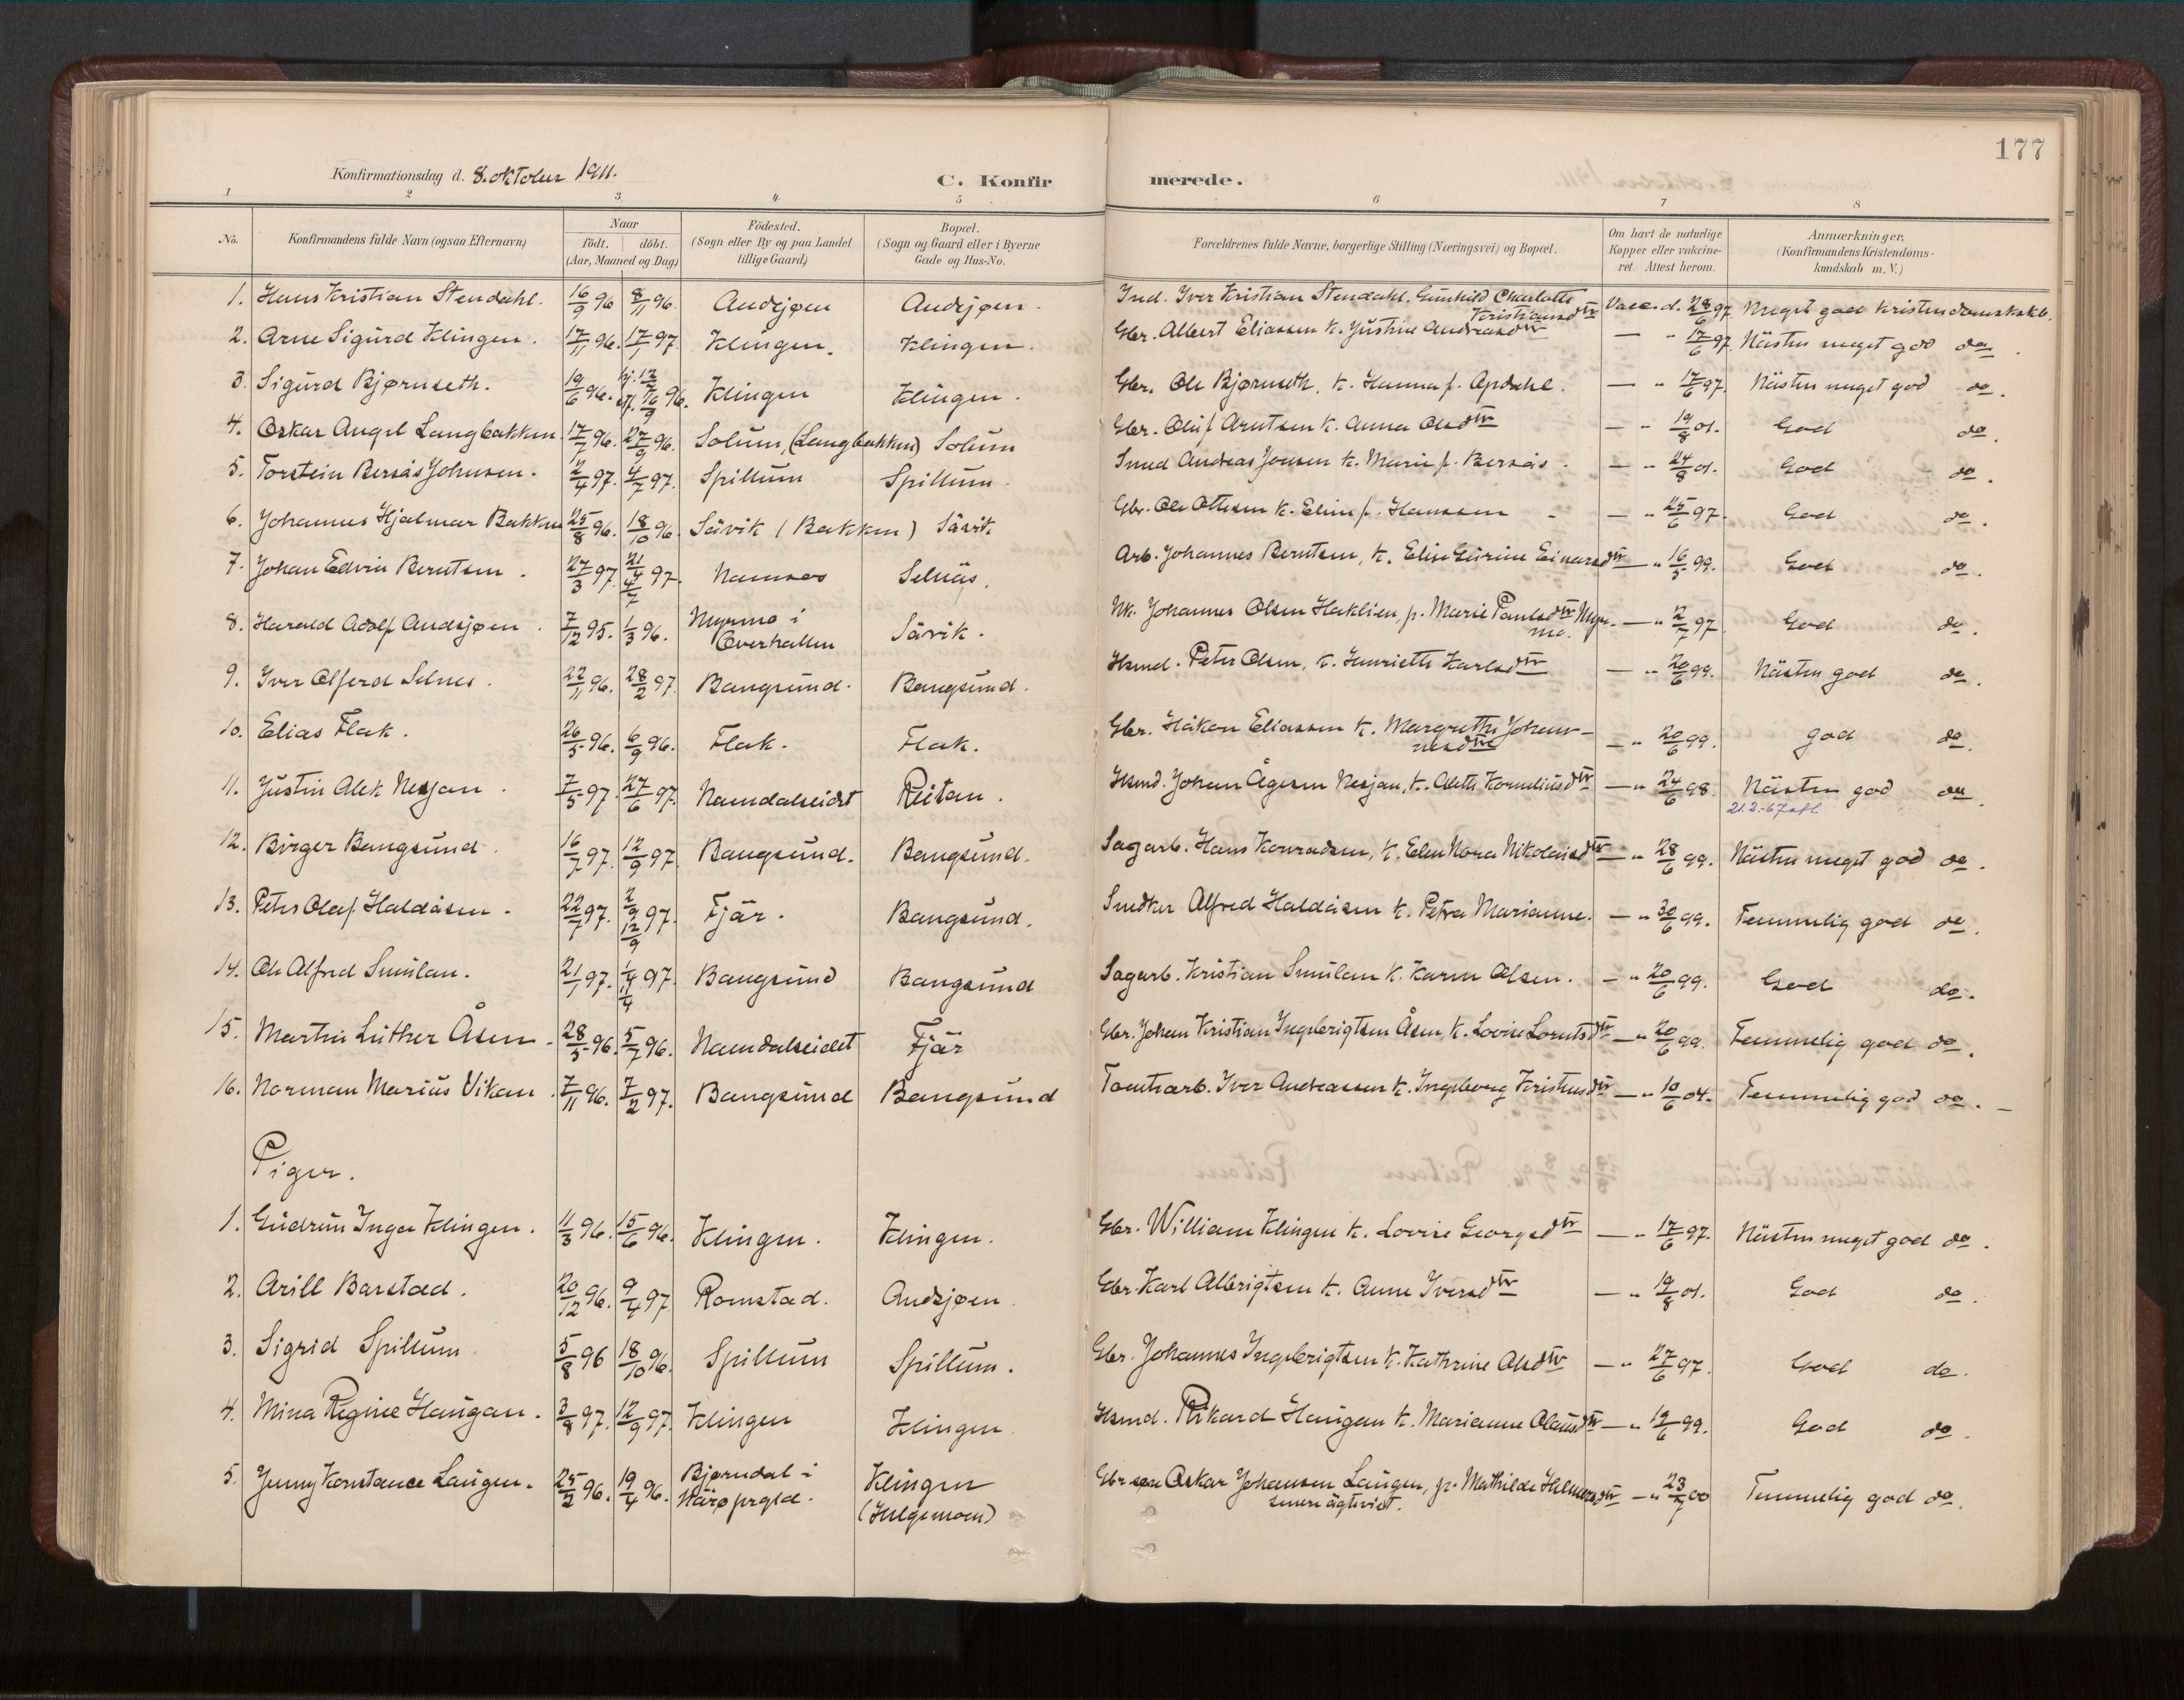 177
Konfirmationsdag d. 8. oktober 1911.
C. Konfirmerede.
1 2 3 4 5 6 7 8
No. Konfirmandens fulde Navn (ogsaa Efternavn) Naar født. døbt. (Aar, Maaned og Dag) Födested. (Sogn eller By og paa Landet tillige Gaard) Bopæl. (Sogn og Gaard eller i Byerne Gade og Hus-No. Forældrenes fulde Navne, borgerlige Stilling (Næringsvei) og Bopæl. Om havt de naturlige Kopper eller vaccineret. Attest herom. Anmærkninger. (Konfirmandens Kristendomskundskab m.V.)
1. Hans Kristian Stendahl. 16/9 96 8/11 96. Andsjøen Andsjøen. Ind. Iver Kristian Stendahl. Gunhild Charlotte Kristiansdtr Vacc. d. 28/6 97. Meget god kristendomskskb.
2. Arne Sigurd Klingen. 17/11 96. 17/1 97. Klingen. Klingen. Gbr. Albert Eliassen k. Justine Andreasdtr — " 17/6 97. Nästen meget god do.
3. Sigurd Bjørnseth. 19/6 96. Klingen Klingen. Gbr. Ole Bjørnseth, k. Hanna f. Apdahl. — " 17/6 97. Nästen meget god do.
4. Oskar Angel Langbakken 17/7 96. 27/9 96. Solum, (Langbakken) Solum Gbr. Oluf Arntsen k. Anna Olsdtr — " 19/8 01. God do.
5. Torstein Bersås Johnsen. 2/4 97. 4/7 97. Spillum Spillum Smed Andreas Jonsen k. Marie f. Bersås. — " 24/8 01. God do.
6. Johannes Hjalmar Bakken 25/8 96. 18/10 96. Sävik (Bakken) Sävik Gbr. Ole Ottesen k. Elina f. Hanssen — " 25/6 97. God do.
7. Johan Edvin Berntsen. 27/3 97. 21/4 4/7 97. Namsos Selnäs. Arb. Johannes Berntsen, k. Elise Gurine Einarsdtr — " 16/5 99. God do.
8. Harald Adolf Andsjøen. 7/12 95. 1/3 96. Myrmo i Overhallen Sävik. Uk. Johannes Olsen Haklien, p. Marie Paulsdtr Myrmo. — " 2/7 97 God do.
9. Iver Alferd Selnes. 22/11 96. 28/2 97. Bangsund. Bangsund. Hsmd. Peter Olsen, k. Henriette Karlsdtr — " 20/6 99. Nästen god do.
10. Elias Flak. 26/5 96. 6/9 96. Flak. Flak. Gbr. Håkon Eliassen k. Margrethe Johannesdtr — " 20/6 99. god do.
11. Justin Alek Nesjan. 7/5 97. 27/6 97. Namdalseidet Reitan. Hsmd. Johan Ågesen Nesjan, k. Alette Korneliusdtr — " 24/6 98. Nästen god do.
12. Birger Bangsund. 16/7 97. 12/9 97. Bangsund. Bangsund. Sagarb. Hans Konradsen, k. Elen Nora Nikolaisdtr — " 28/6 99. Nästen meget god do.
13. Peter Olaf Haldåsen. 22/7 97. 2/9 12/9 97. Fjär. Bangsund. Snedker Alfred Haldåsen k. Petra Marianne. — " 30/6 99. Temmelig god do.
14. Ole Alfred Smulan. 21/1 97. 1/4 11/4 97. Bangsund Bangsund Sagarb. Kristian Smulan k. Karen Olsen. — " 20/6 99. God do.
15. Martin Luther Åsen. 28/5 96. 5/7 96. Namdalseidet Fjär Gbr. Johan Kristian Ingebrigtsen Åsen, k. Lovise Lorntsdtr — " 20/6 99. Temmelig god do.
16. Norman Marius Vikan. 7/11 96. 7/2 97. Bangsund Bangsund Tomtearb. Iver Andreassen k. Ingeborg Kristensdtr — " 10/6 04. Temmelig god do. —
Piger.
1. Gudrun Inga Klingen. 11/3 96. 15/6 96. Klingen. Klingen. Gbr. William Klingen k. Lovise Georgsdtr — " 17/6 97. Nästen meget god do.
2. Arill Barstad. 20/12 96. 9/4 97 Romstad. Andsjøen. Gbr. Karl Albrigtsen k. Anne Iversdtr — " 19/8 01. God do.
3. Sigrid Spillum 5/8 96 18/10 96. Spillum Spillum. Gbr. Johannes Ingebrigtsen k. Kathrine Olsdtr — " 27/6 97. God do.
4. Mina Regine Haugan. 3/8 97. 12/9 97. Klingen Klingen Hsmd. Rikard Haugan k. Marianne Olausdtr — " 19/6 99. God do.
5. Jenny Konstance Laugen. 25/2 96. 19/4 96. Bjørndal i Närø prgld. Klingen (Helgemoen) Oskar Johansen Laugen, p. Mathilde Helmersdtr senere ägteviet. — " 23/7 00 Temmelig god do.